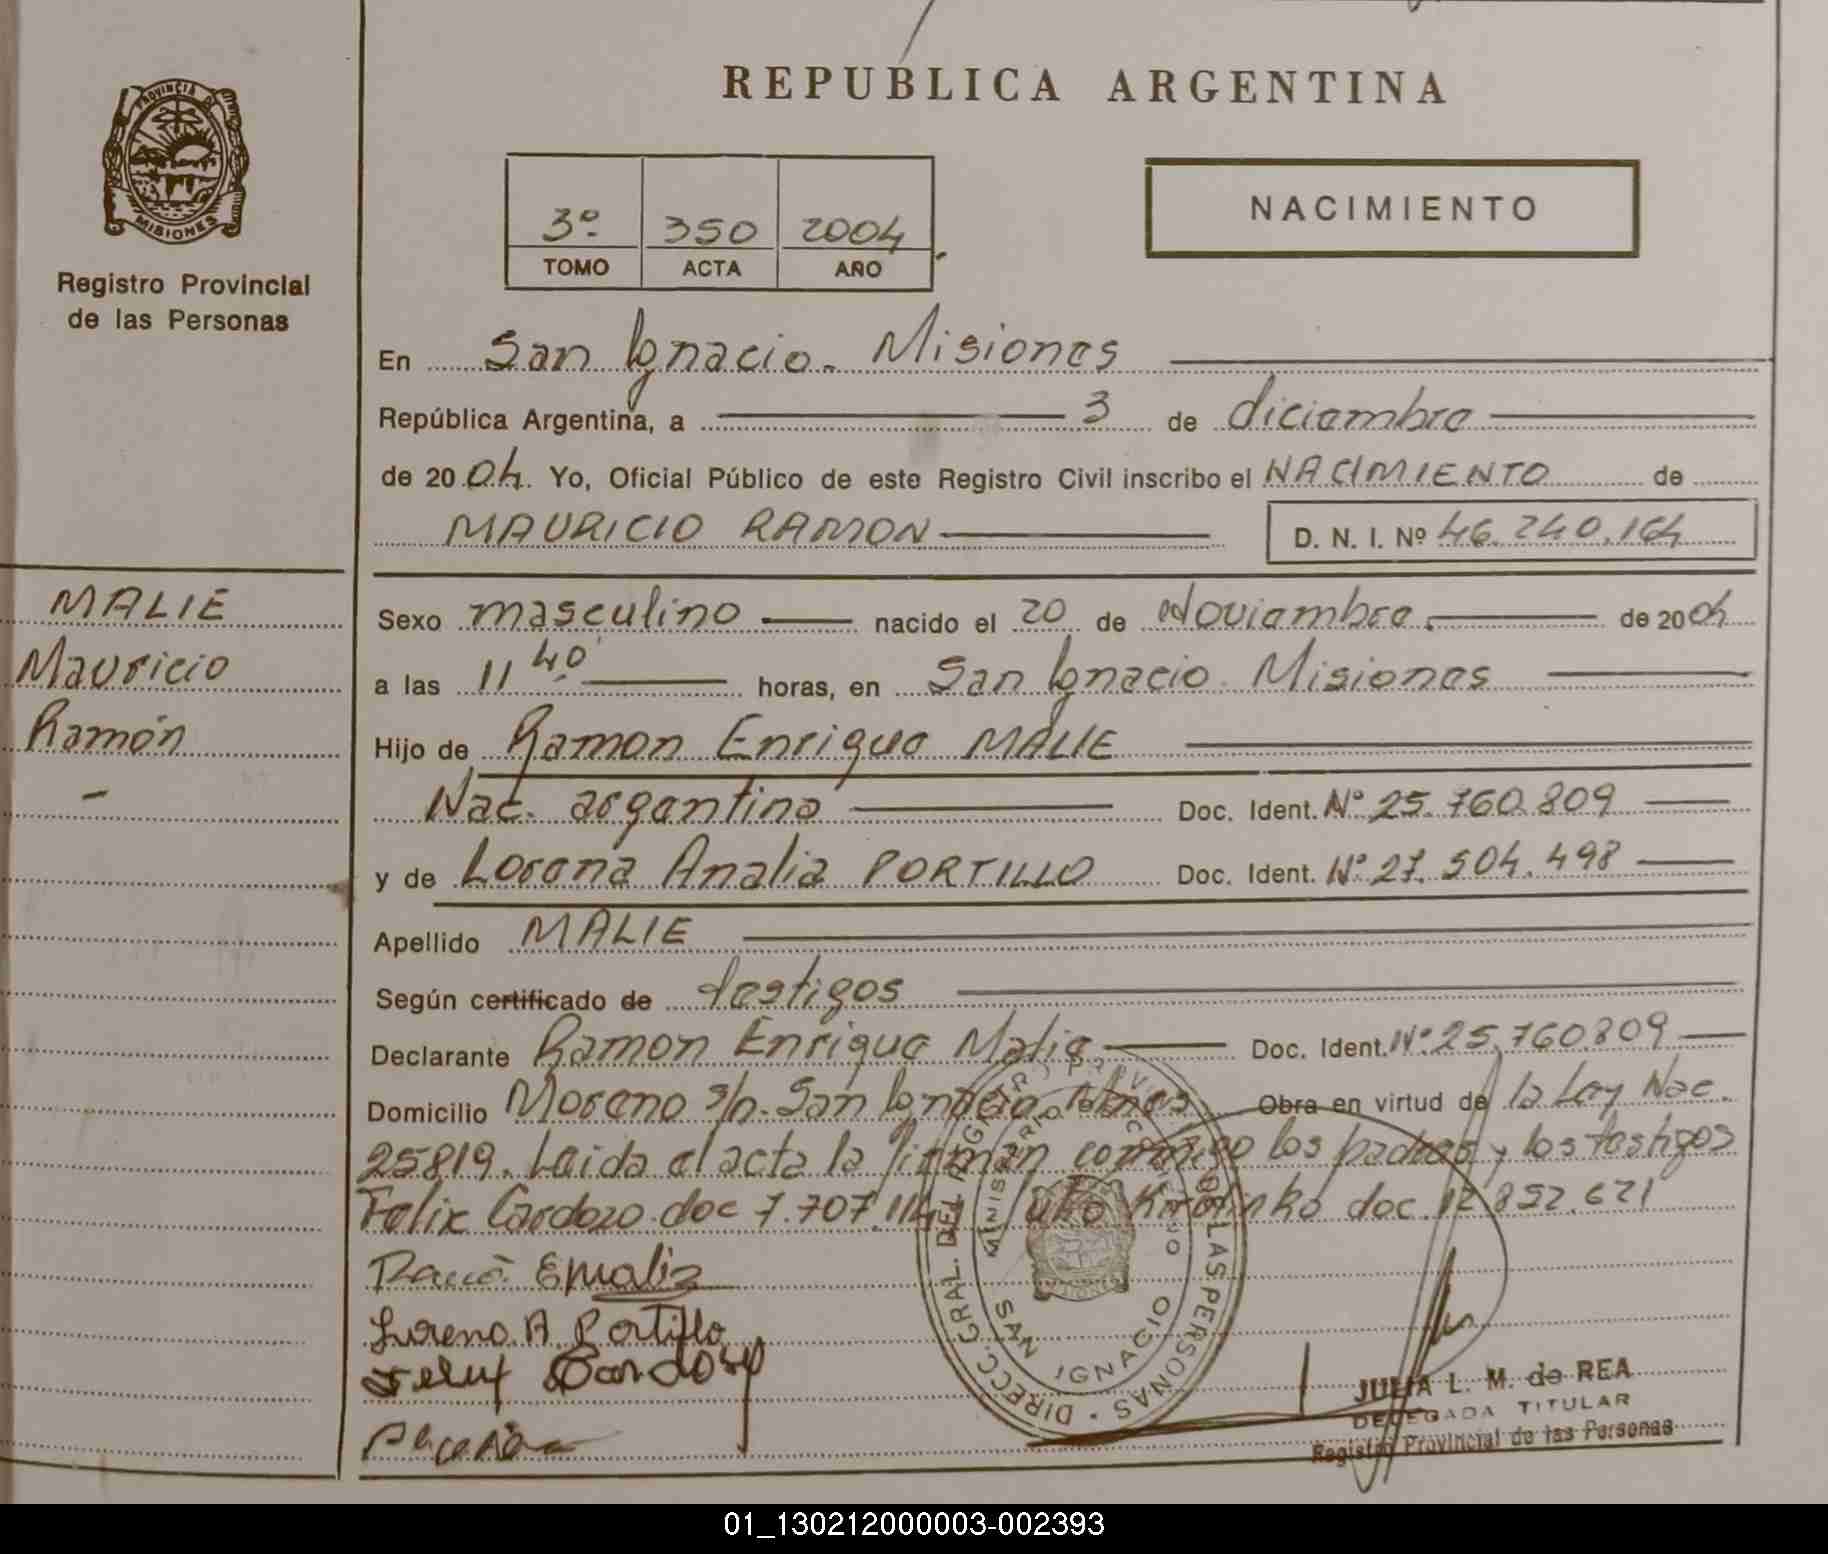 PROVINCIA DE
MISIONES
Registro Provincial
de las Personas
MALIE
Mauricio
Ramón
REPUBLICA ARGENTINA
3º 350 2004
TOMO ACTA AÑO
NACIMIENTO
En San Ignacio. Misiones
República Argentina, a 3 de diciembre
de 2004. Yo, Oficial Público de este Registro Civil inscribo el NACIMIENTO de
MAURICIO RAMON D. N. I. Nº 46.240.164
Sexo masculino nacido el 20 de Noviembre. de 2004
a las 11 40' horas, en San Ignacio. Misiones
Hijo de Ramon Enrique MALIE
Nac. argentina Doc. Ident. Nº 25.760.809
y de Lorena Analia PORTILLO Doc. Ident. Nº 27.504.498
Apellido MALIE
Según certificado de testigos
Declarante Ramon Enrique Malie Doc. Ident. Nº 25.760.809
Domicilio Moreno s/n. San Ignacio. Mnes Obra en virtud de la Ley Nac.
25819. Leida el acta la firman conmigo los padres y los testigos
Felix Cardozo doc 7.707.114 y doc. 12.852.621
Lorena A Portillo
Cardozo
DIRECC. GRAL. DEL REGISTRO PROVINCIAL DE LAS PERSONAS
MINISTERIO DE GOBIERNO
SAN IGNACIO
JULIA L. M. de REA
DELEGADA TITULAR
Registro Provincial de las Personas
01_130212000003-002393